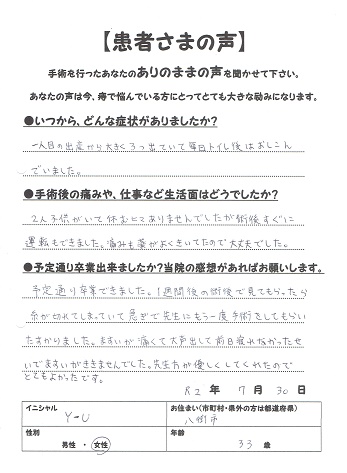 【患者さまの声】
手術を行ったあなたのありのままの声を聞かせて下さい。
あなたの声は今、痔で悩んでいる方にとってとても大きな励みになります。
●いつから、どんな症状がありましたか?
一人目の出産から大きく3つ出ていて毎日トイレ後はおしこん
でいました。
●手術後の痛みや、仕事など生活面はどうでしたか?
2人子供がいて休むことありませんでしたが術後すぐに
運転もできました。痛みも薬がよくきいてたので大丈夫でした。
●予定通り卒業出来ましたか?当院の感想があればお願いします。
予定通り卒業できました。1週間後の術後で見てもらったら
糸が切れてしまっていて急ぎで先生にもう一度手術をしてもらい
たすかりました。ますいが痛くて大声出して前日寝れなかったせ
いでますいがききませんでした。先生方が優しくしてくれたので
とてもよかったです。
R2年 7月 30日
イニシャル
Y-U
お住まい(市町村・県外の方は都道府県)
八街市
性別
男性 ・ 女性
年齢
33 歳